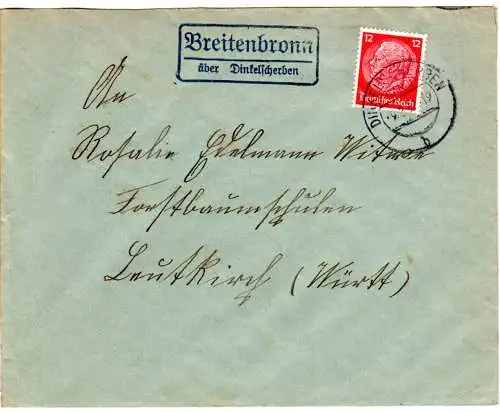 Breitenbronn
über Dinkelscherben
12 12
Deutsches Reich
An
Rosalie Edelmann Witwe
Forstbaumschulen
Leutkirch (Württ)